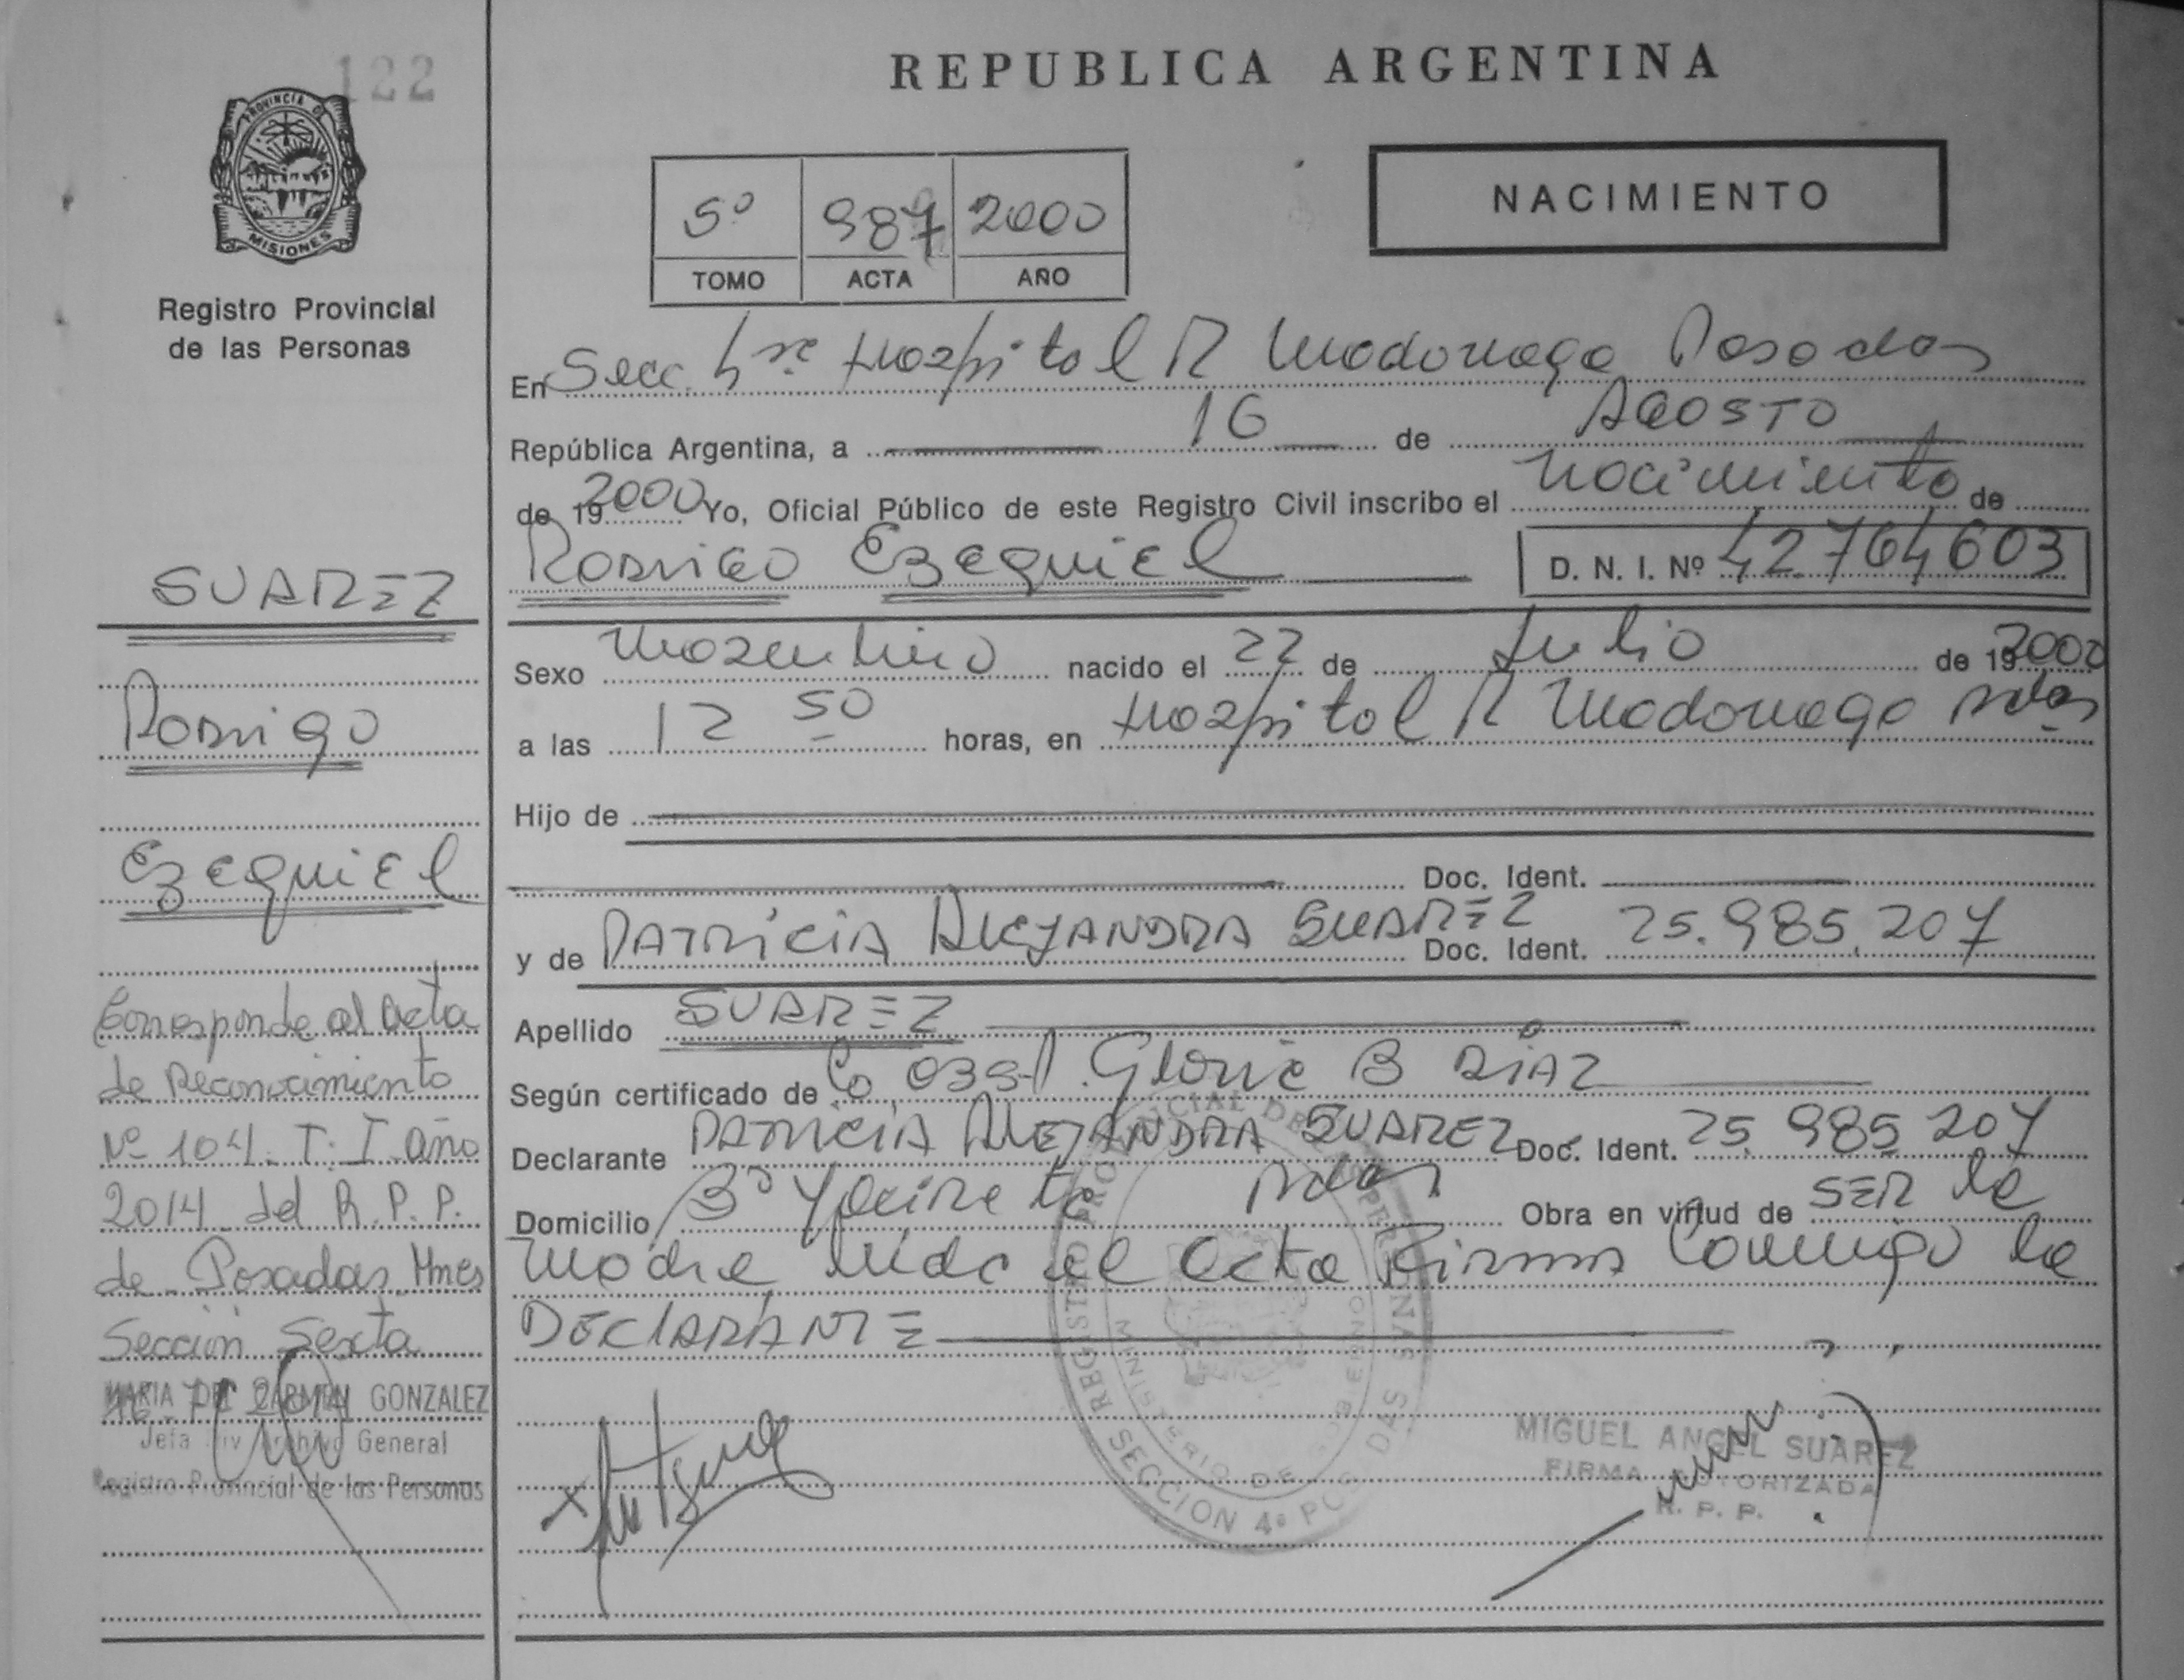 122
REPUBLICA ARGENTINA
PROVINCIA DE
MISIONES
Registro Provincial
de las Personas
NACIMIENTO
5º 987 2000
TOMO ACTA AÑO
En Secc. 4ta Hospital R Madariaga Posadas
República Argentina, a 16 de AGOSTO
de 19 2000 Yo, Oficial Público de este Registro Civil inscribo el nacimiento de
RODRIGO EZEQUIEL D. N. I. Nº 42764603
Sexo masculino nacido el 22 de Julio de 19 2000
a las 12 50 horas, en Hospital R Madariaga Pdas
Hijo de
Doc. Ident.
y de PATRICIA ALEJANDRA SUAREZ Doc. Ident. 25.985.207
Apellido SUAREZ
Según certificado de Gloria B DIAZ
Declarante PATRICIA ALEJANDRA SUAREZ Doc. Ident. 25 985 207
Domicilio Bº Pdas Obra en virtud de SER la
madre leída el acta Firma conmigo la
DECLARANTE
SUAREZ
Rodrigo
Ezequiel
Corresponde al acta
de Reconocimiento
Nº 104. T: I año
2014 del R.P.P.
de Posadas Mnes
Sección Sexta
MARIA DEL CARMEN GONZALEZ
Jefa Div Archivo General
Registro Provincial de las Personas
REGISTRO PROVINCIAL DE LAS PERSONAS
MINISTERIO DE GOBIERNO
SECCION 4º POSADAS
MIGUEL ANGEL SUAREZ
FIRMA AUTORIZADA
R. P. P.